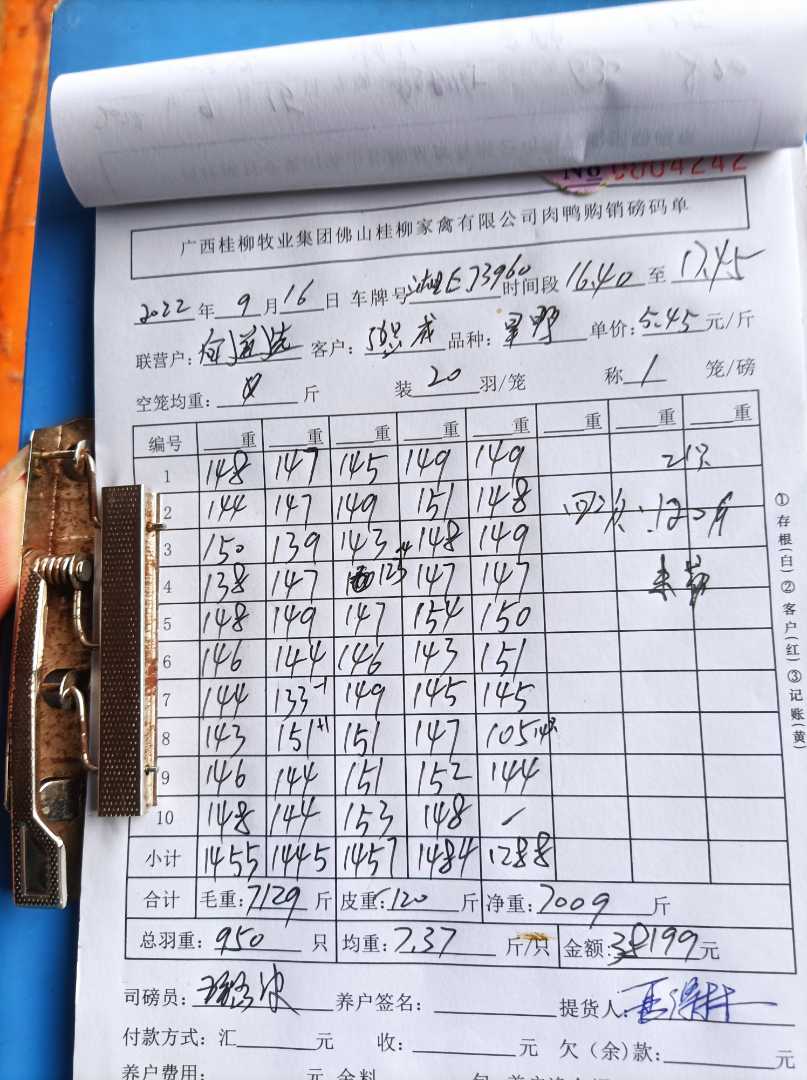 No 0004242
广西桂柳牧业集团佛山桂柳家禽有限公司肉鸭购销磅码单
2022年9月16日 车牌号湘E73960时间段16.40至17.45
联营户： 客户： 成 品种： 野 单价：5.45元/斤
空笼均重：0斤 装20羽/笼 称1笼/磅
编号 重 重 重 重 重 重 重 重
1 148 147 145 149 149 21只
2 144 147 149 151 148 回次：120斤
3 150 139 143 148 149
4 138 147 125 147 147
5 148 149 147 154 150
6 146 144 146 143 151
7 144 133-1 149 145 145
8 143 151+1 151 147 105 14只
9 146 144 151 152 144
10 148 144 153 148 -
小计 1455 1445 1457 1484 1288
合计 毛重：7129斤 皮重：120斤 净重：7009斤
总羽重：950只 均重：7.37斤/只 金额：38199元
司磅员： 养户签名： 提货人：
付款方式：汇 元 收： 元 欠（余）款： 元
养户费用： 元 余料
①存根(白)②客户(红)③记账(黄)